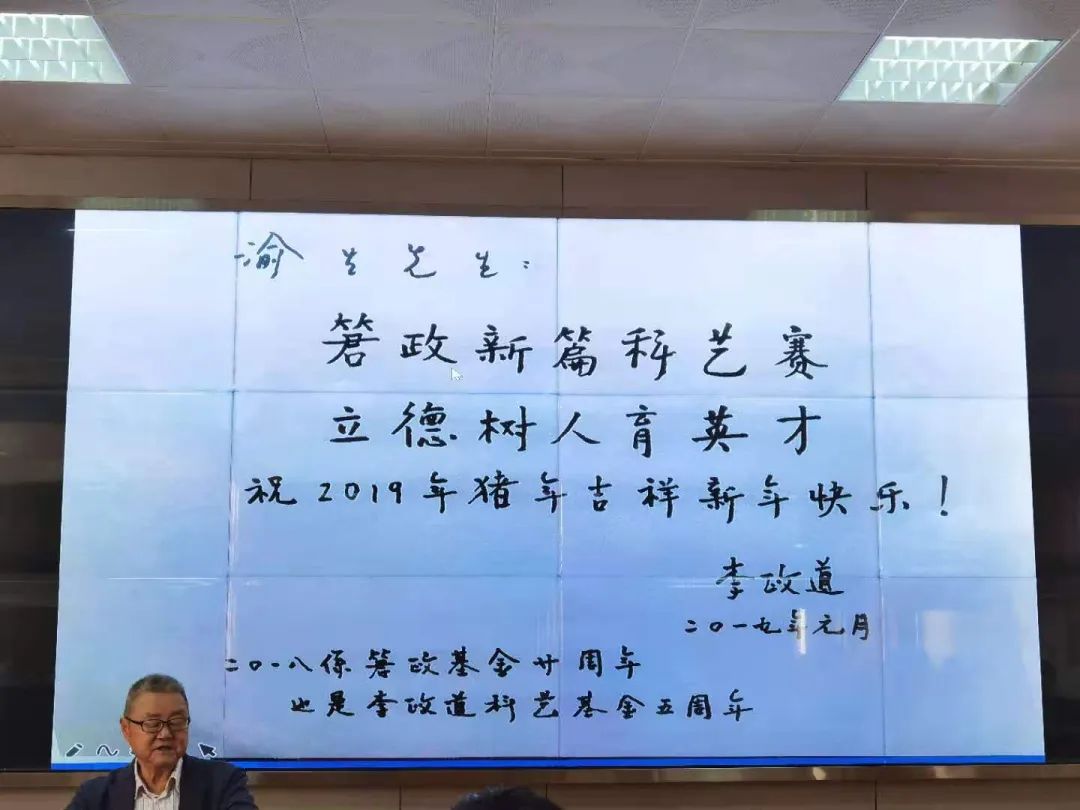 渝生先生：
箬政新篇科艺赛
立德树人育英才
祝2019年猪年吉祥新年快乐！
李政道
二〇一九年元月
二〇一八係箬政基金廿周年
也是李政道科艺基金五周年